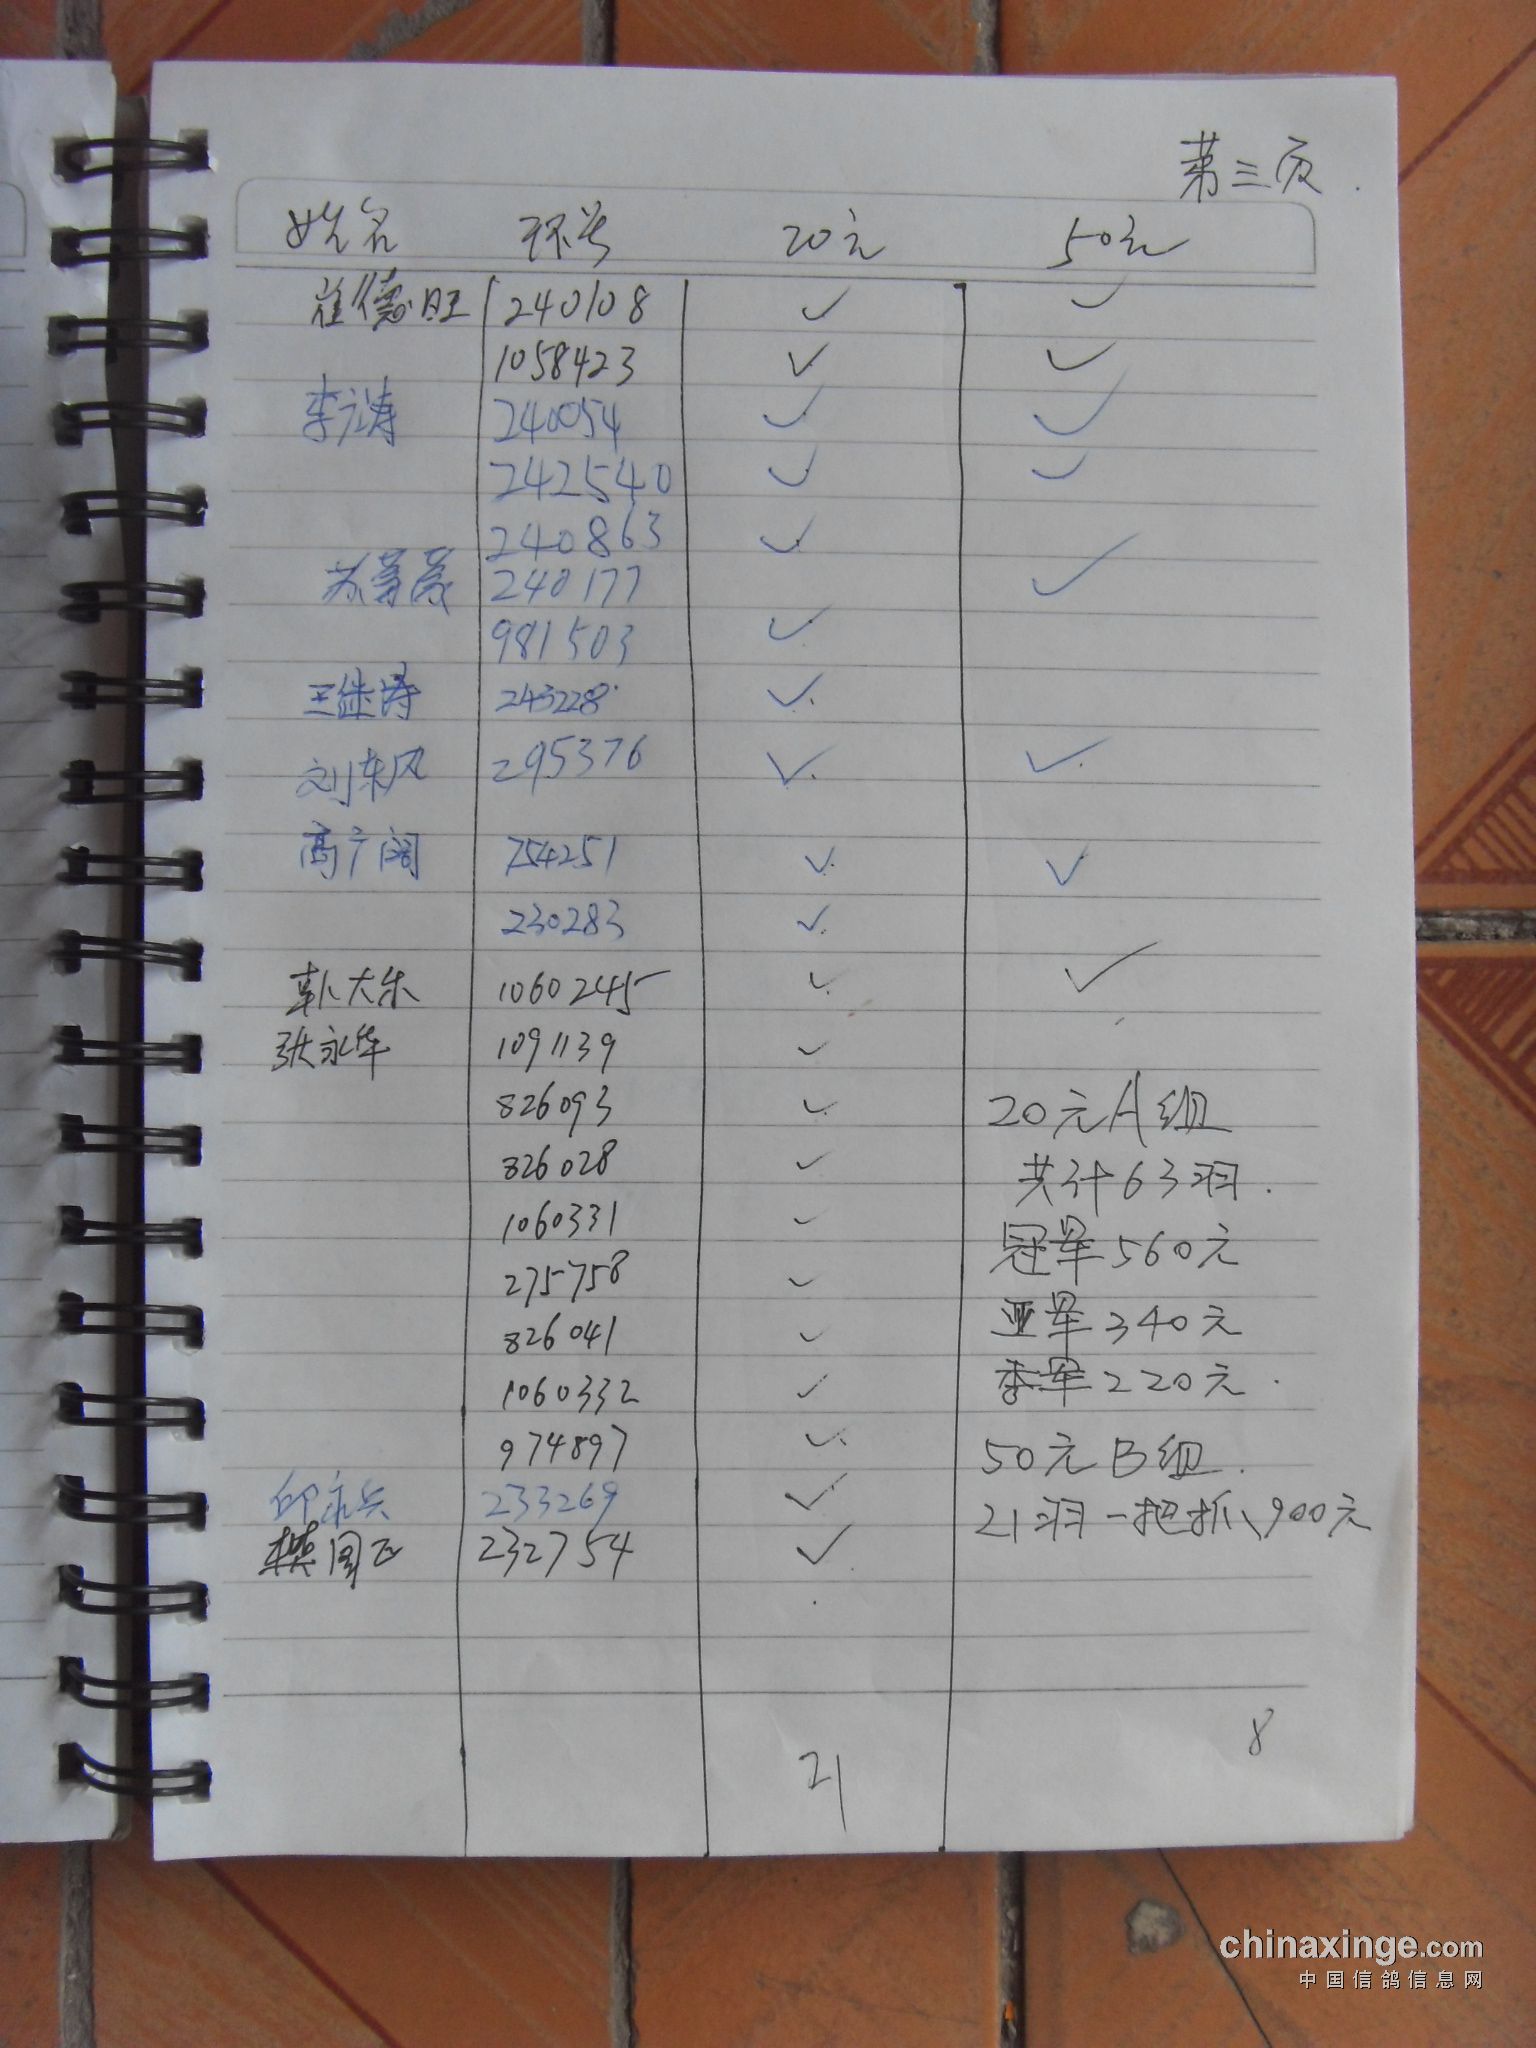 第三页
姓名 环号 20元 50元
崔德旺 240108 ✓ ✓
1058423 ✓ ✓
李广涛 240054 ✓ ✓
242540 ✓ ✓
240863 ✓
苏 240177 ✓
981503 ✓
王继涛 243228 ✓
刘东风 295376 ✓ ✓
高广阔 754251 ✓ ✓
230283 ✓
大乐 10602445 ✓ ✓
张永华 1091139 ✓
826093 ✓
20元A组
826028 ✓
共计63羽.
1060331 ✓
冠军560元
275758 ✓
826041 ✓
亚军340元
1060332 ✓
季军220元.
974897 ✓
50元B组.
邱永兵 233269 ✓
21羽一把抓、900元
国正 232754 ✓
21
8
chinaxinge.com
中国信鸽信息网